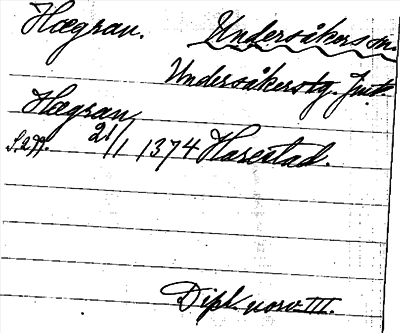 Hægran. Undersåkers sn.
Undersåkers tg. Jmtl.
Hægran
S.2A. 21/1 1374 Harestad.
Dipl norv III.